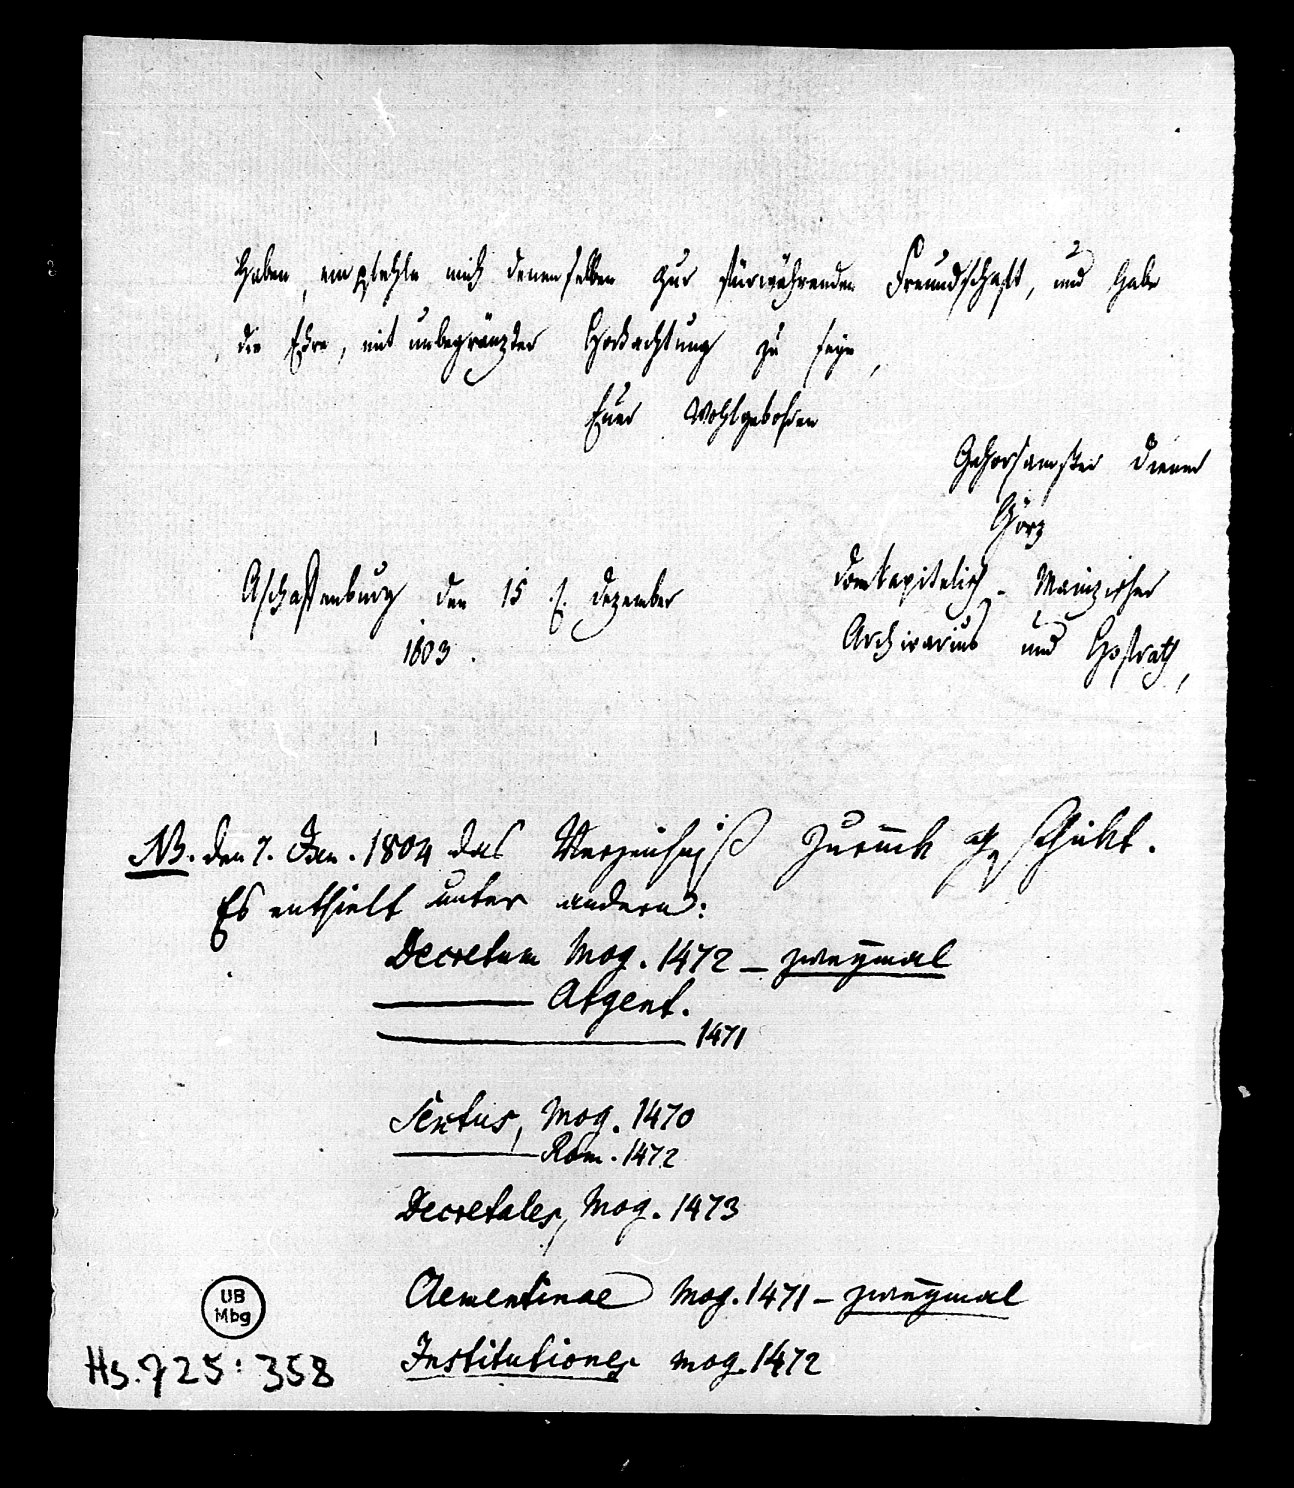 haben, empfehle mich denenselben zur fürwährenden Freundschaft, und habe
die Ehre, mit unbegränzter Hochachtung zu seyn,
Euer Wohlgebohren
Gehorsamster Diener
Görz
Domkapitelisch-Mainzischer
Archivarius und Hofrath,
Aschaffenburg den 15 t. Dezember
1803.
NB. den 7. Jan. 1804 das Verzeichniß zurück geschikt.
Es enthielt unter andern:
Decretum Mog. 1472 – zweÿmal
——— Argent.
——— 1471
Sextus, Mog. 1470
——— Rom. 1472
Decretales, Mog. 1473
Clementinae Mog. 1471 – zweÿmal
Institutiones Mog. 1472
UB
Mbg
Hs. 725: 358